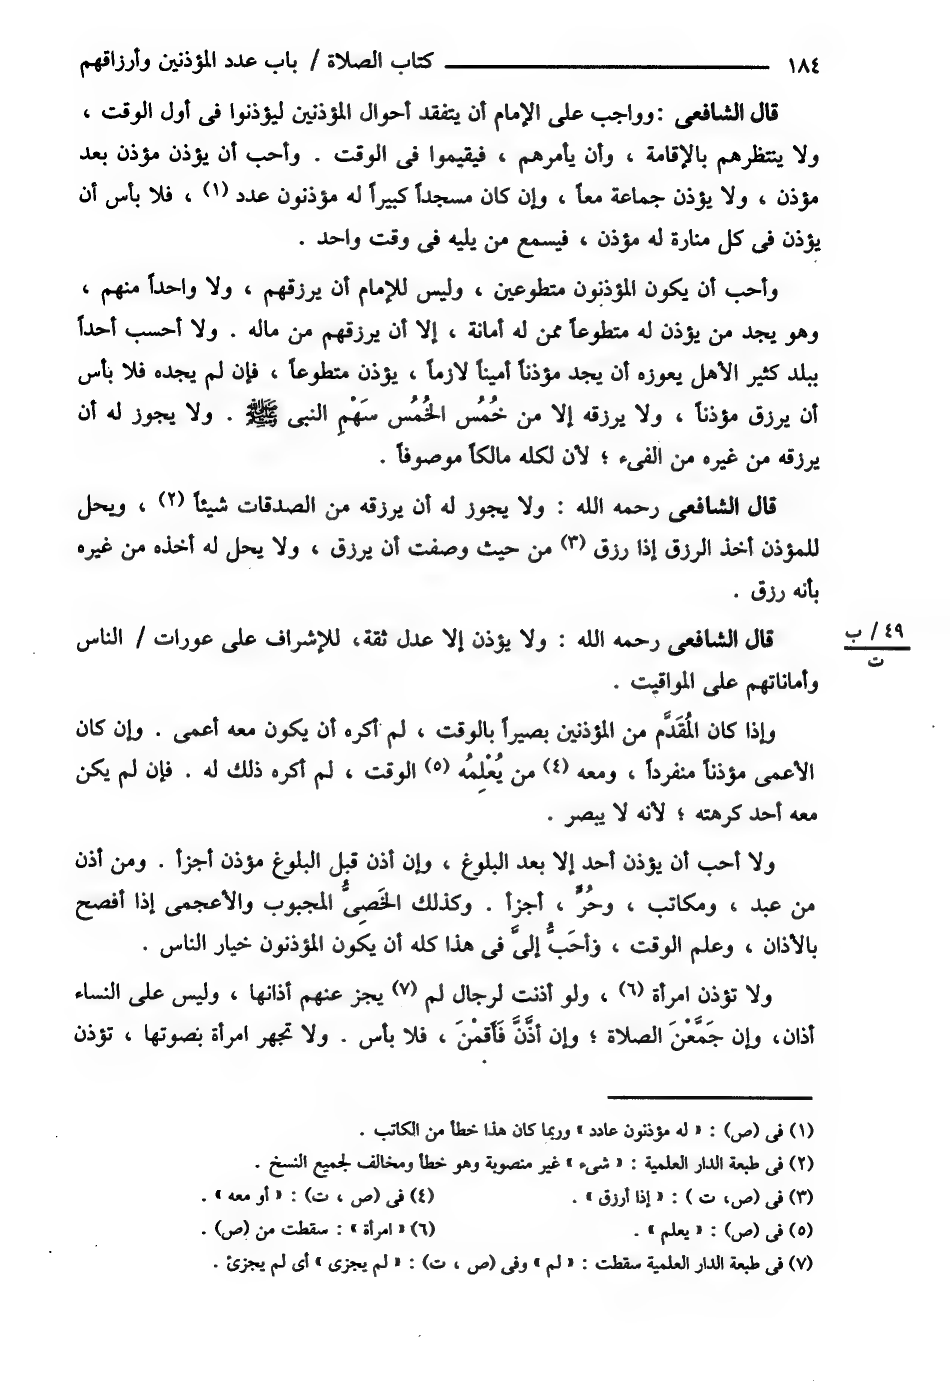 ١٨٤ كتاب الصلاة / باب عدد المؤذنين وأرزاقهم
قال الشافعى : وواجب على الإمام أن يتفقد أحوال المؤذنين ليؤذنوا فى أول الوقت ،
ولا ينتظرهم بالإقامة ، وأن يأمرهم ، فيقيموا فى الوقت . وأحب أن يؤذن مؤذن بعد
مؤذن ، ولا يؤذن جماعة معاً ، وإن كان مسجداً كبيراً له مؤذنون عدد (١) ، فلا بأس أن
يؤذن فى كل منارة له مؤذن ، فيسمع من يليه فى وقت واحد .
وأحب أن يكون المؤذنون متطوعين ، وليس للإمام أن يرزقهم ، ولا واحداً منهم ،
وهو يجد من يؤذن له متطوعاً ممن له أمانة ، إلا أن يرزقهم من ماله . ولا أحسب أحداً
ببلد كثير الأهل يعوزه أن يجد مؤذناً أميناً لازماً ، يؤذن متطوعاً ، فإن لم يجده فلا بأس
أن يرزق مؤذناً ، ولا يرزقه إلا من خُمُس الخُمُس سَهْمِ النبى ﷺ . ولا يجوز له أن
يرزقه من غيره من الفىء ؛ لأن لكله مالكاً موصوفاً .
قال الشافعى رحمه الله : ولا يجوز له أن يرزقه من الصدقات شيئاً (٢) ، ويحل
للمؤذن أخذ الرزق إذا رزق (٣) من حيث وصفت أن يرزق ، ولا يحل له أخذه من غيره
بأنه رزق .
قال الشافعى رحمه الله : ولا يؤذن إلا عدل ثقة، للإشراف على عورات / الناس
٤٩ / ب
ت
وأماناتهم على المواقيت .
وإذا كان المُقَدَّم من المؤذنين بصيراً بالوقت ، لم أكره أن يكون معه أعمى . وإن كان
الأعمى مؤذناً منفرداً ، ومعه (٤) من يُعْلِمُه (٥) الوقت ، لم أكره ذلك له . فإن لم يكن
معه أحد كرهته ؛ لأنه لا يبصر .
ولا أحب أن يؤذن أحد إلا بعد البلوغ ، وإن أذن قبل البلوغ مؤذن أجزأ . ومن أذن
من عبد ، ومكاتب ، وحُرٍّ ، أجزأ . وكذلك الخَصِىُّ المجبوب والأعجمى إذا أفصح
بالأذان ، وعلم الوقت ، وَأحَبُّ إلىَّ فى هذا كله أن يكون المؤذنون خيار الناس .
ولا تؤذن امرأة (٦) ، ولو أذنت لرجال لم (٧) يجز عنهم أذانها ، وليس على النساء
أذان، وإن جَمَّعْنَ الصلاة ؛ وإن أذَّنَّ فَأقمْنَ ، فلا بأس . ولا تجهر امرأة بصوتها ، تؤذن
(١) فى (ص) : « له مؤذنون عادد » وربما كان هذا خطأ من الكاتب .
(٢) فى طبعة الدار العلمية : « شىء » غير منصوبة وهو خطأ ومخالف لجميع النسخ .
(٣) فى (ص، ت ) : « إذا أرزق » . (٤) فى (ص ، ت) : « أو معه » .
(٥) فى (ص) : « يعلم » . (٦) « امرأة » : سقطت من (ص) .
(٧) فى طبعة الدار العلمية سقطت : « لم » وفى (ص ، ت) : « لم يجزى » أى لم يجزئ .